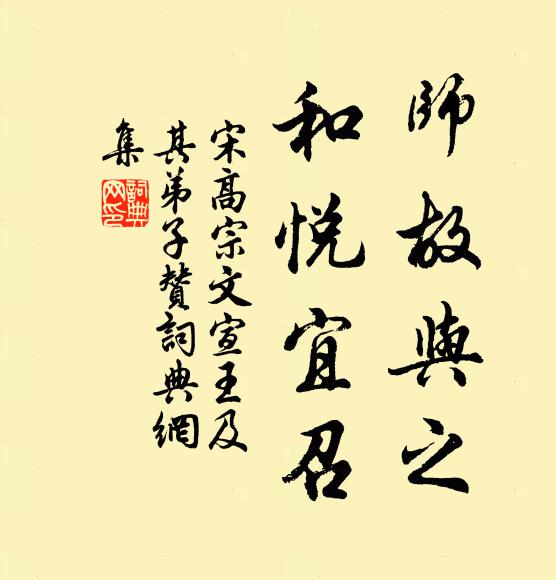 師故與之
和悅宜召
宋高宗文宣王及
其弟子贊詞典網
集
詞典
网印